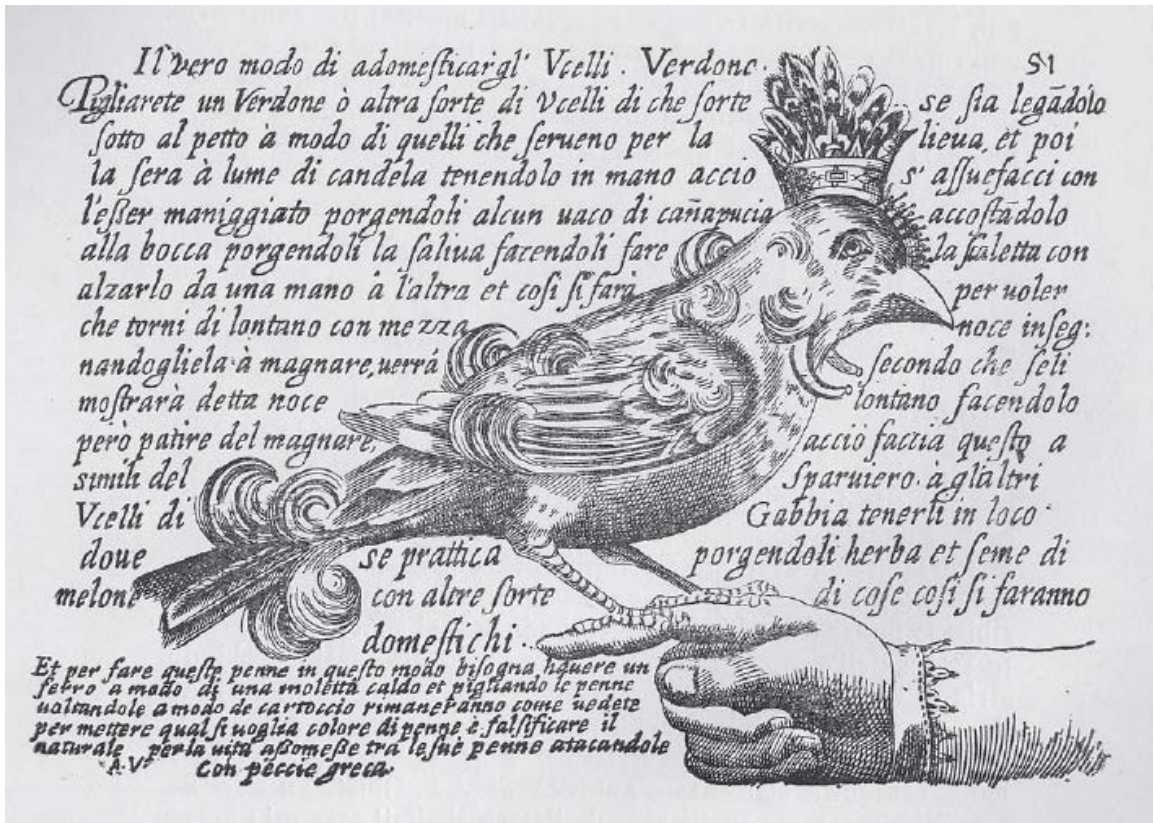 Il vero modo di adomesticar gl' Vcelli . Verdone . 51
Pigliarete un Verdone ò altra sorte di Vcelli di che sorte se sia legãdolo
sotto al petto à modo di quelli che serueno per la lieua, et poi
la sera à lume di candela tenendolo in mano accio s' assuefacci con
l'esser maniggiato porgendoli alcun uaco di cañapucia accostãdolo
alla bocca porgendoli la saliua facendoli fare la scaletta con
alzarlo da una mano à l'altra et cosi si farà per uoler
che torni di lontano con mezza noce inseg:
nandogliela à magnare, uerrá secondo che seli
mostrarà detta noce lontano facendolo
però patire del magnare, acciò faccia questo a
simili del Sparuiero . à gl'altri
Vcelli di Gabbia tenerli in loco
doue se prattica porgendoli herba et seme di
melone con altre sorte di cose cosi si faranno
domestichi .
Et per fare queste penne in questo modo bisogna hauere un
ferro a modo di una moletta caldo et pigliando le penne
uoltandole a modo de cartoccio rimaneranno come uedete
per mettere qual si uoglia colore di penne è falsificare il
naturale per la uita assomesse tra le sue penne atacandole
A. V. con peccie greca